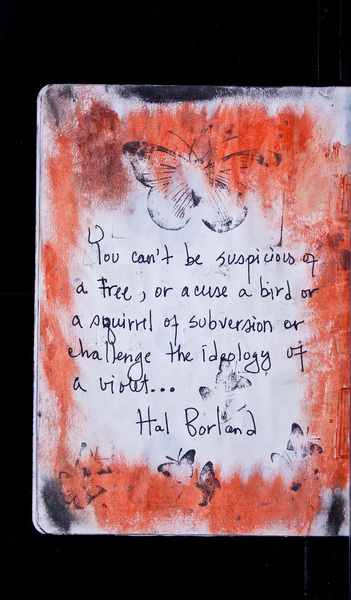 You can't be suspicious of
a tree, or acuse a bird or
a squirrel of subversion or
challenge the ideology of
a violet...
Hal Borland